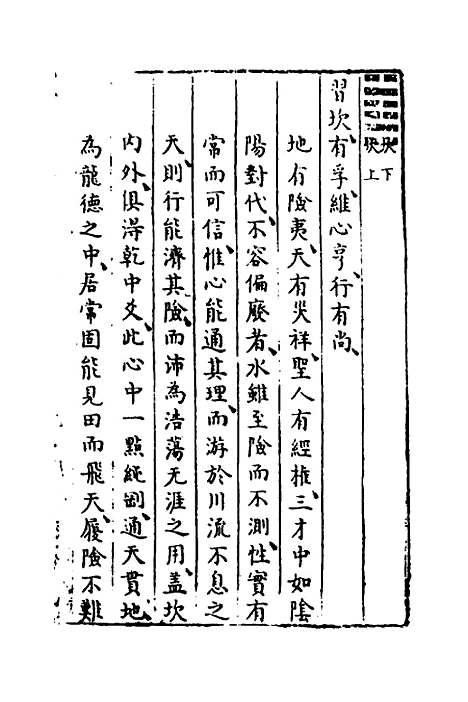 坎下
坎上
習坎有孚維心亨行有尚
地有險夷天有災祥聖人有經權三才中如陰
陽對代不容偏廢者水雖至險而不測性實有
常而可信惟心能通其理而游於川流不息之
天則行能濟其險而沛為浩蕩无涯之用蓋坎
內外俱得乾中爻此心中一點純剛通天貫地
為龍德之中居常固能見田而飛天履險不難